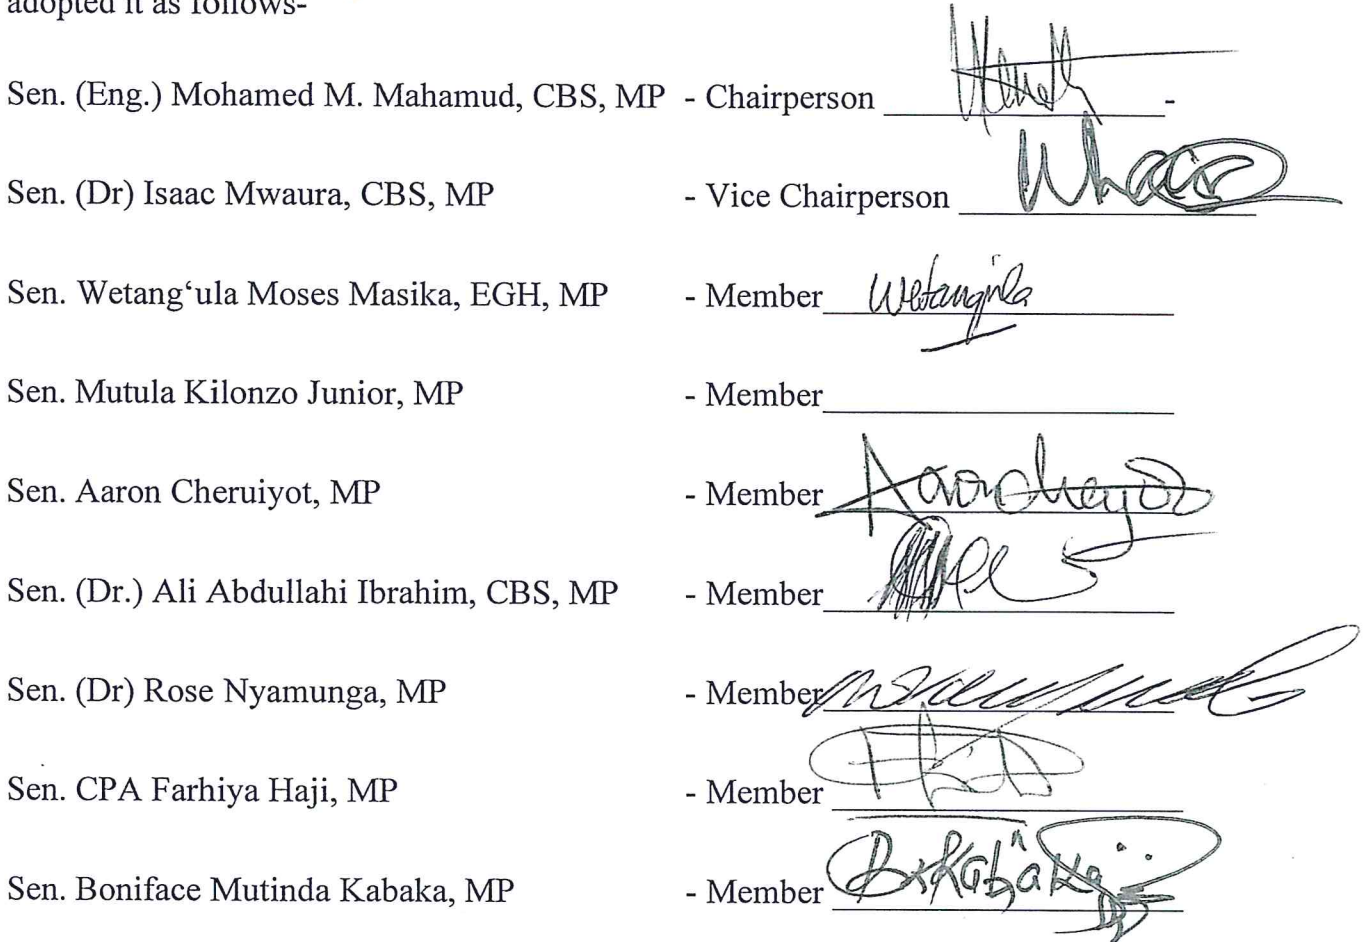 adopted it as follows-
Sen. (Eng.) Mohamed M. Mahamud, CBS, MP - Chairperson
Sen. (Dr) Isaac Mwaura, CBS, MP - Vice Chairperson
Sen. Wetang‘ula Moses Masika, EGH, MP - Member Wetangula
Sen. Mutula Kilonzo Junior, MP - Member
Sen. Aaron Cheruiyot, MP - Member
Sen. (Dr.) Ali Abdullahi Ibrahim, CBS, MP - Member
Sen. (Dr) Rose Nyamunga, MP - Member
Sen. CPA Farhiya Haji, MP - Member
Sen. Boniface Mutinda Kabaka, MP - Member